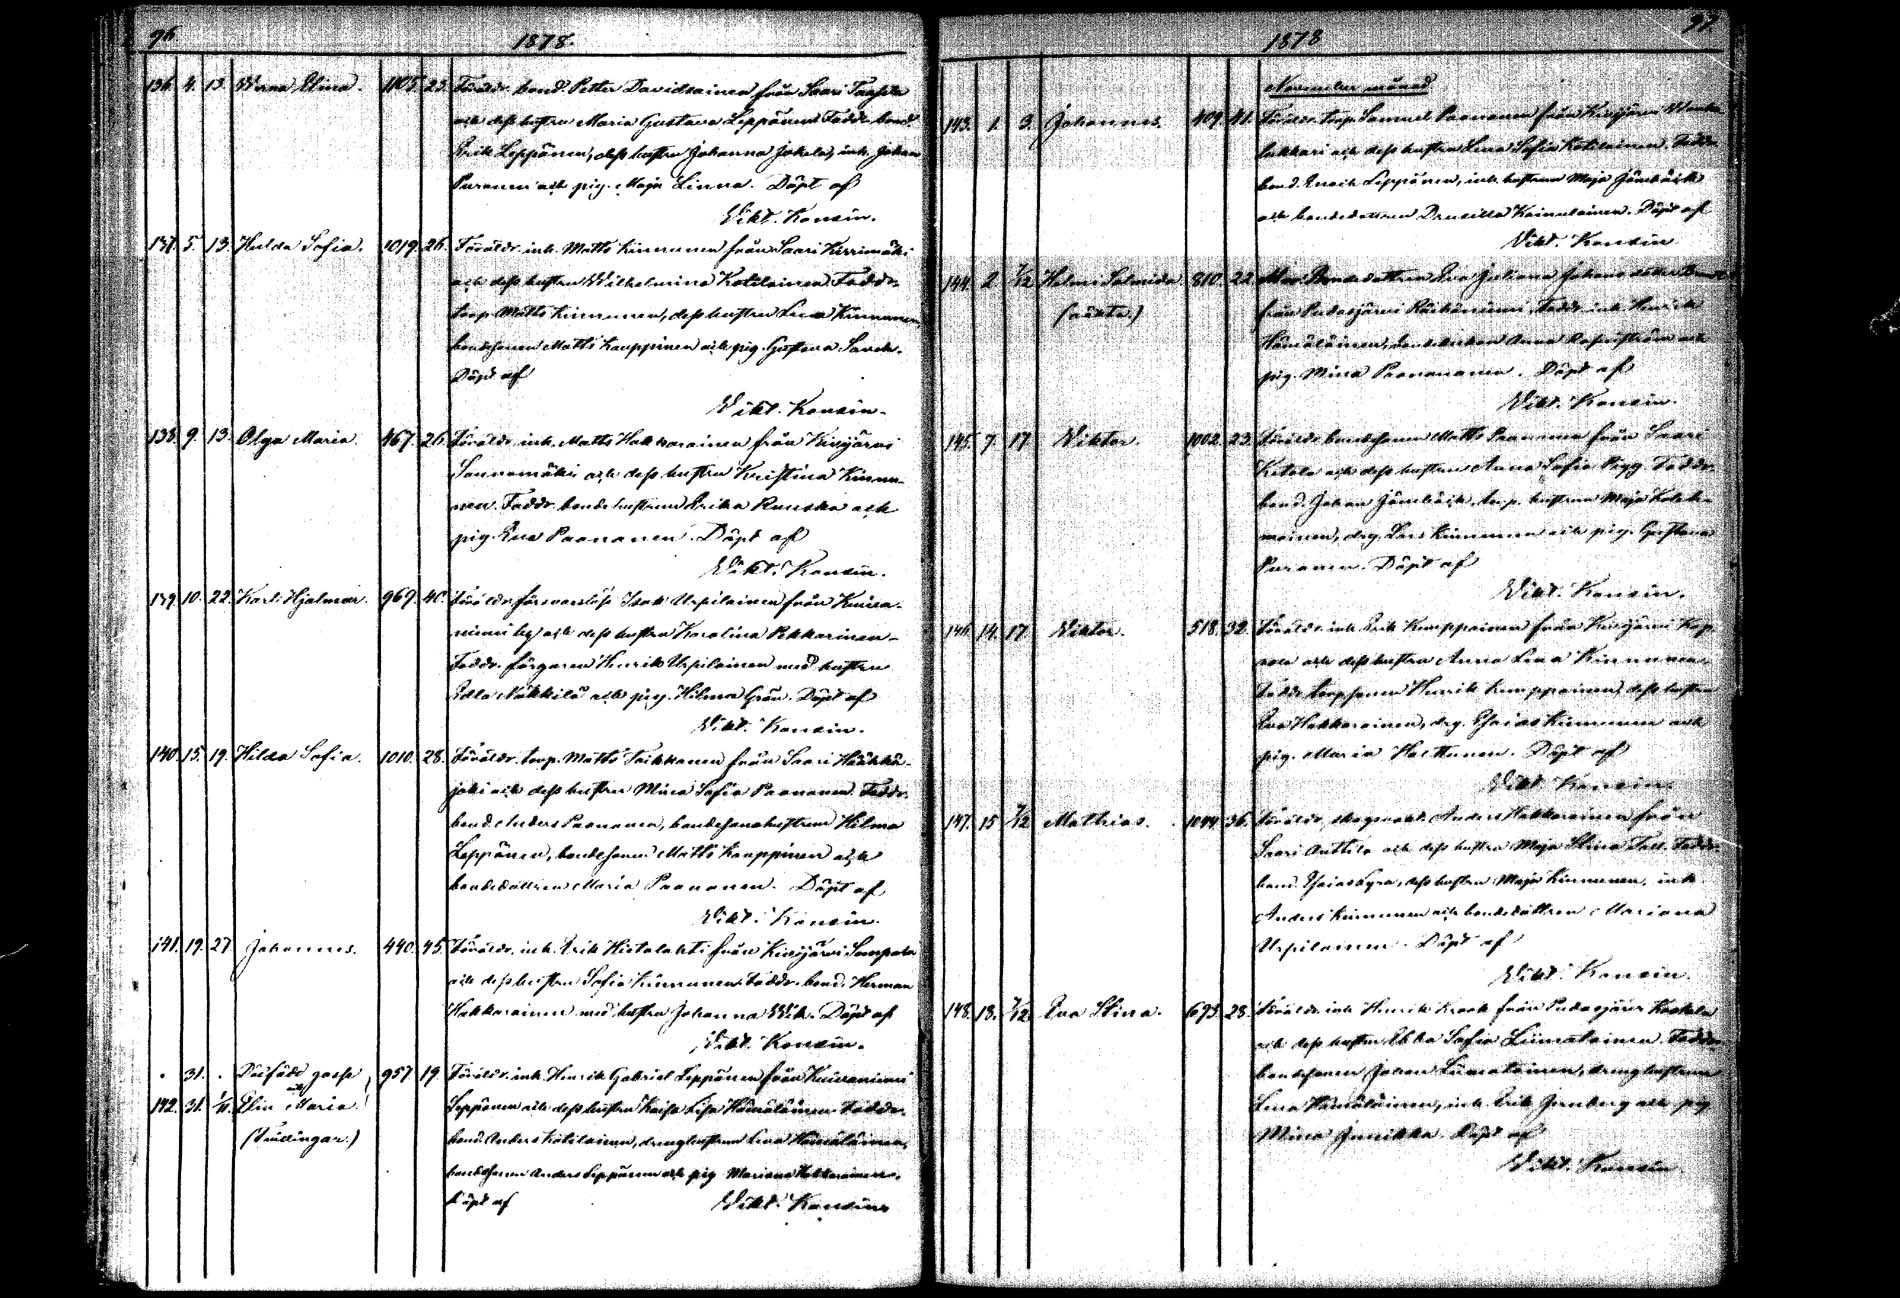 96
1878.
136. 4. 13. Werna Elina. 1105. 23. Föräldr. bond. Petter Davidsainen från Saari
och dess hustru Maria Gustava Leppänen. Faddr. bond.
Erik Leppänen, dess hustru Johanna Jokela, inh. Johan
Puranen och pig. Maja Linna. Döpt af
Vikt. Konsin.
137. 5. 13. Hulda Sofia. 1019. 26. Föräldr. inh. Matts Kinnunen från Saari Kerrimäki
och dess hustru Wilhelmina Kotilainen. Faddr.
torp. Matts Kinnunen, dess hustru Lena Kinnunen,
bondesonen Matts Kauppinen och pig. Gustava
Döpt af
Vikt. Konsin.
138. 9. 13. Olga Maria. 467. 26. Föräldr. inh. Matts Hakkarainen från Kivijärvi
Sannamäki och dess hustru Kristina Kinnu-
nen. Faddr. bondehustrun Erika Ruuska och
pig. Eva Paananen. Döpt af
Vikt. Konsin.
139. 10. 22. Karl Hjalmar. 969. 40. Föräldr. försvarslöse Isak Urpilainen från Kuiva-
niemi by och dess hustru Karolina Pekkarinen.
Faddr. färgaren Henrik Urpilainen med hustru
Edla Näkkilä och pig. Hilma Grån. Döpt af
Vikt. Konsin.
140. 15. 19. Hilda Sofia. 1010. 28. Föräldr. torp. Matts Taikkanen från Saari
joki och dess hustru Mina Sofia Paananen. Faddr.
bond. Anders Paananen, bondesonshustrun Hilma
Leppänen, bondesonen Matts Kauppinen och
bondedottren Maria Paananen. Döpt af
Vikt. Konsin.
141. 19. 27 Johannes. 440. 45. Föräldr. inh. Erik Hietalahti från Kivijärvi Lampela
och dess hustru Sofia Kinnunen. Faddr. bond. Herman
Hakkarainen med hustru Johanna Wik. Döpt af
Vikt. Konsin.
. 31. . Dödfödd gosse 957 19. Föräldr. inh. Henrik Gabriel Leppänen från Kuivaniemi
och
142. 31. 1/11. Elin Maria. Leppänen och dess hustru Kaisa Lisa Hämäläinen. Faddr.
(Tvillingar.) bond. Anders Kotilainen, dränghustrun Lena Hämäläinen,
bondesonen Anders Leppänen och pig. Mariana Hakkarainen.
Döpt af Vikt. Konsin
97.
1878
November månad
143. 1. 3. Johannes. 409. 41. Föräldr. torp. Samuel Paananen från Kivijärvi
och dess hustru Lena Sofia Kotilainen. Faddr.
bond. Enoch Leppänen, inh. hustrun Maja Jämbäck
och bondedottren Drusilla Kainulainen. Döpt af
Vikt. Konsin
144. 2 1/12 Helmi Salmida 810. 22. Mor. Bondedottren Eva Juliana Johansdotter
(oäkta.) från Pudasjärvi. Faddr. inh. Henrik
Hämäläinen, Anna och
pig. Mina Paananen. Döpt af
Vikt. Konsin.
145. 7. 17 Viktor. 1002. 23. Föräldr. bondesonen Matts Paananen från Saari
Ketola och dess hustru Anna Sofia Pigg. Faddr.
bond. Johan Jämbäck, torp. hustrun Maja
drg. Lars Kinnunen och pig. Gustava
Puranen. Döpt af
Vikt. Konsin.
146. 14. 17. Viktor. 518. 32. Föräldr. inh. Erik Kumppainen från Kivijärvi
och dess hustru Anna Lena Kinnunen.
Faddr. torpsonen Henrik Kumppainen, dess hustru
Eva Hakkarainen, drg. Esaias Kinnunen och
pig. Maria Holttunen. Döpt af
Vikt. Konsin.
147. 15 1/12 Mathias. 1044. 36. Föräldr. skogsvakt. Anders Hakkarainen från
Saari Anttila och dess hustru Maja Stina. Faddr.
bond. Esaias, dess hustru Maja Kinnunen, inh.
Anders Kinnunen och bondedottren Mariana
Urpilainen. Döpt af
Vikt. Konsin.
148. 18. 1/12. Eva Stina. 693. 28. Föräldr. inh. Henrik Krook från Pudasjärvi Koskela
och dess hustru Ebba Sofia Liimatainen. Faddr.
bondesonen Johan Liimatainen, dränghustrun
Lena Hämäläinen, inh. Erik och pig.
Mina Junikka. Döpt af
Vikt. Konsin